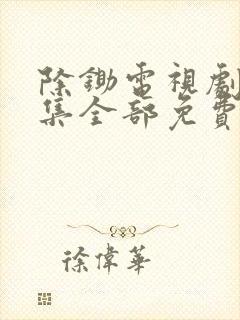 除鋤電視劇
集全部免費
徐偉華